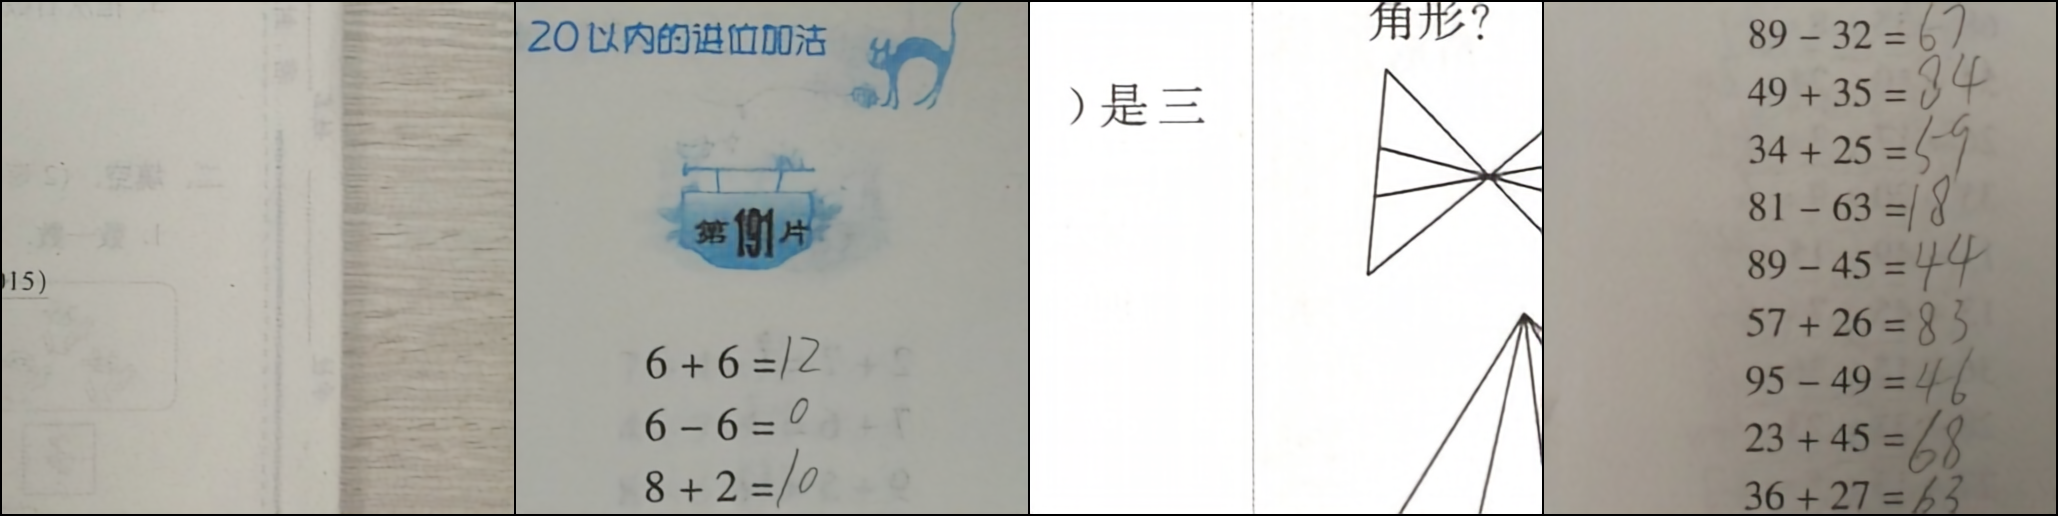 015)
20以内的进位加法
第191片
6 + 6 =12
6 − 6 = 0
8 + 2 =10
角形?
) 是三
89 − 32 = 67
49 + 35 = 84
34 + 25 = 59
81 − 63 = 18
89 − 45 = 44
57 + 26 = 83
95 − 49 = 46
23 + 45 = 68
36 + 27 = 63